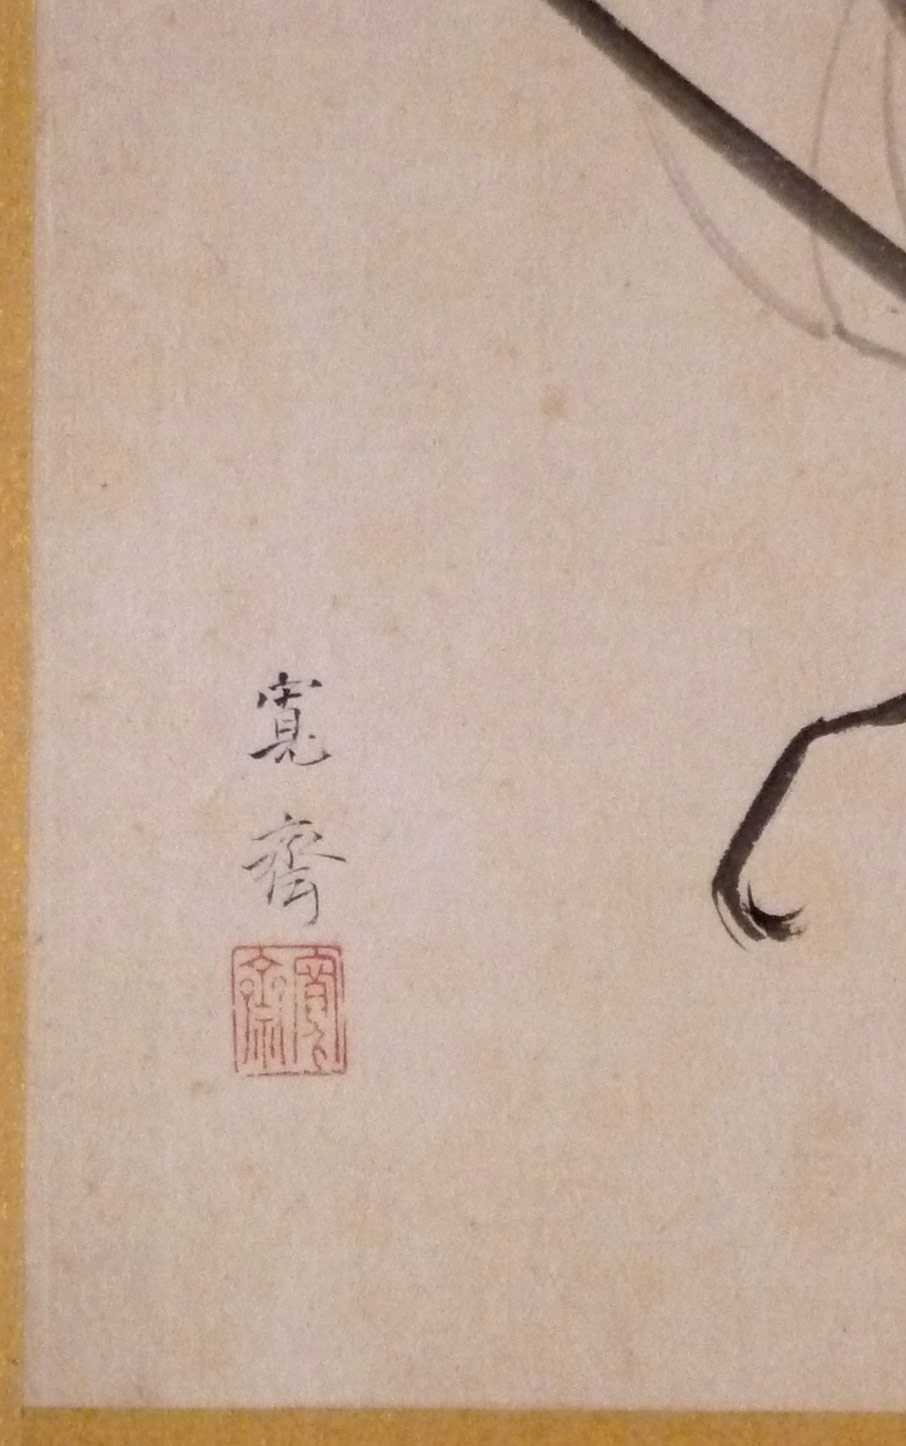 寛齋
寛齋